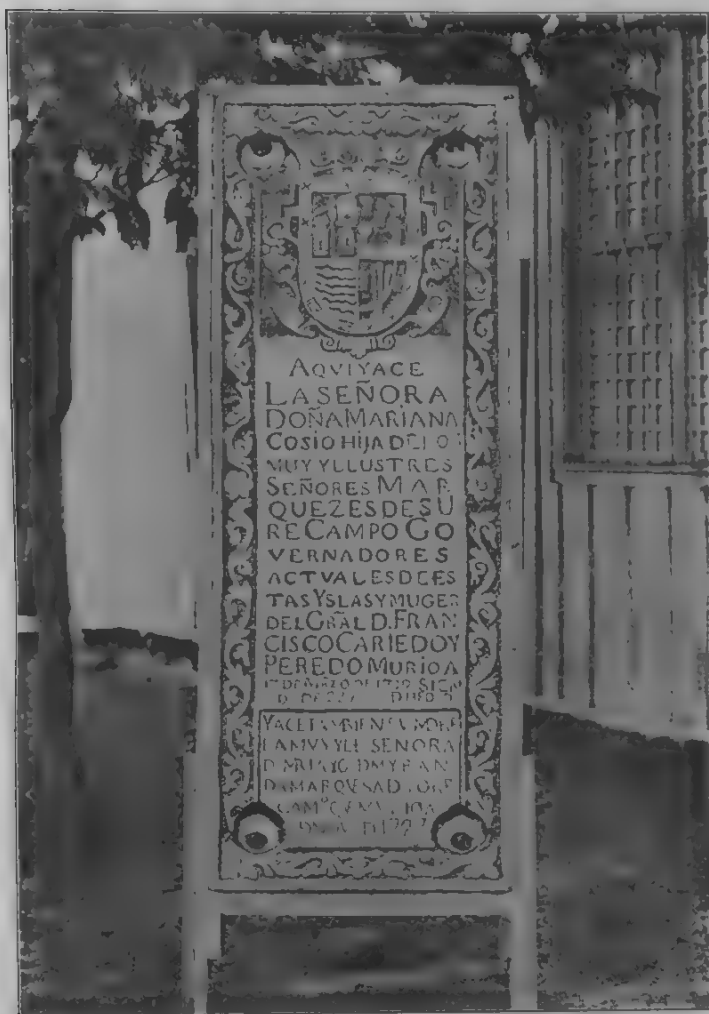 AQVI YACE
LA SEÑORA
DOÑA MARIANA
COSIO HIJA DE LO
MUY YLLUSTRES
SEÑORES MAR
QUEZES DE SU
RE CAMPO GO
VERNADORES
ACTVALES DE ES
TAS YSLAS Y MUGER
DEL GRAL D. FRAN
CISCO CARIEDO Y
PEREDO MURIO A
DE MARZO DE
YACE TAMBIEN
LA MUY YLL SEÑORA
MARQUESA